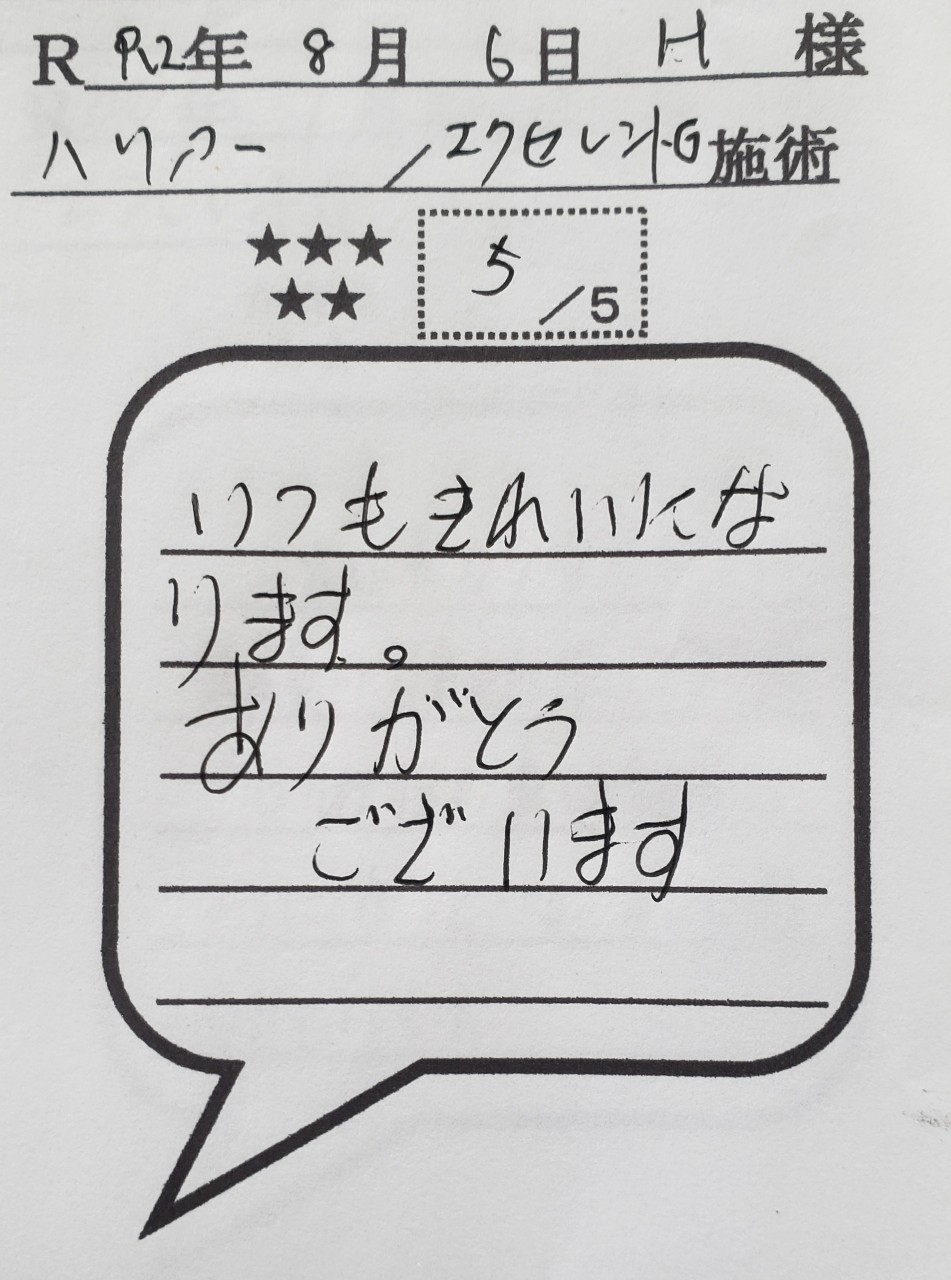 R R2年 8月 6日 H 様
ハリアー / エクセレントG 施術
★★★
★★
5 /5
いつもきれいにな
ります。
ありがとう
ございます